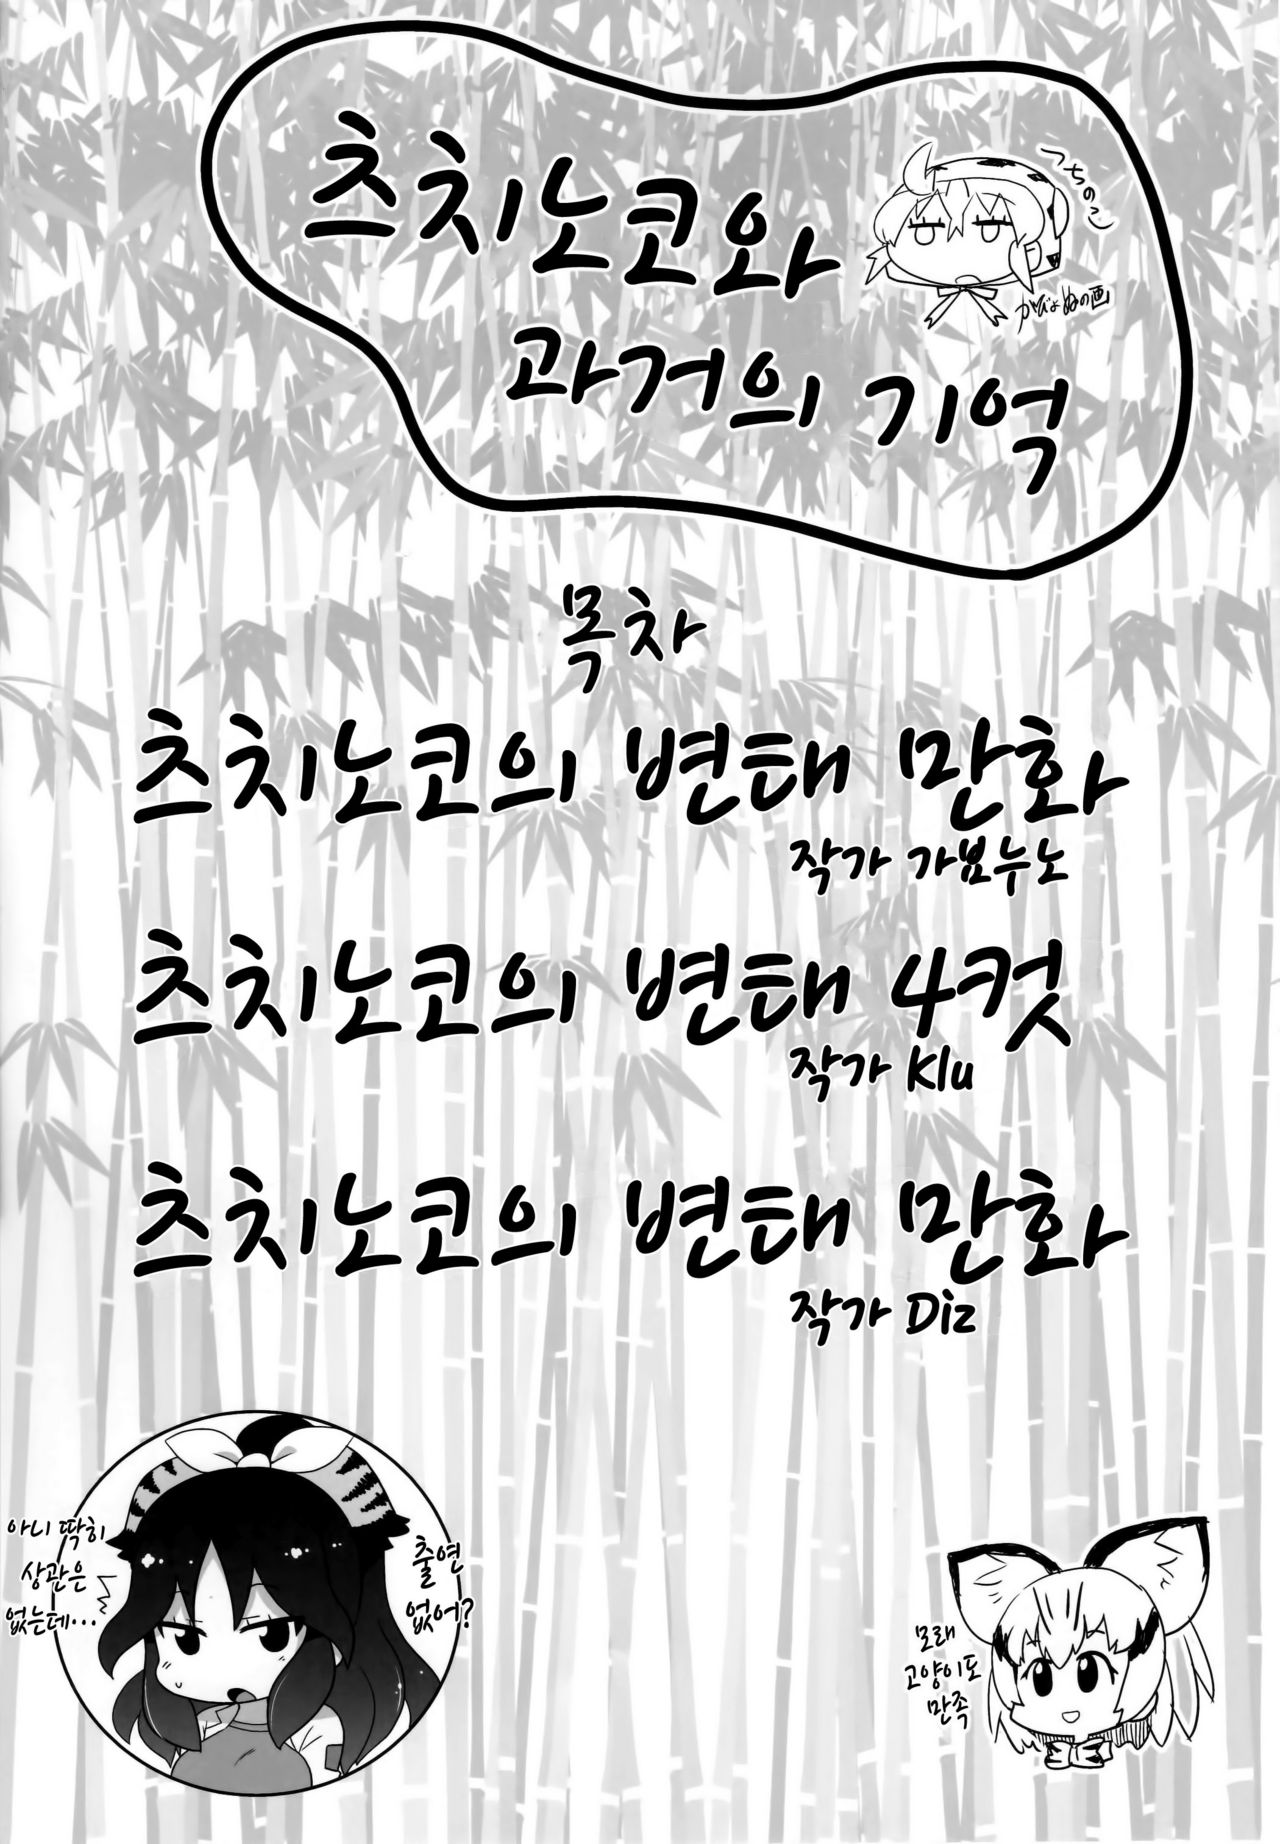 츠치노코와
つちのこ
がびょぬの画
과거의 기억
목차
츠치노코의 변태 만화
작가 가뵤누노
츠치노코의 변태 4컷
작가 Klu
츠치노코의 변태 만화
작가 Diz
출연
없어?
아니 딱히
상관은
없는데...
모래
고양이도
만족